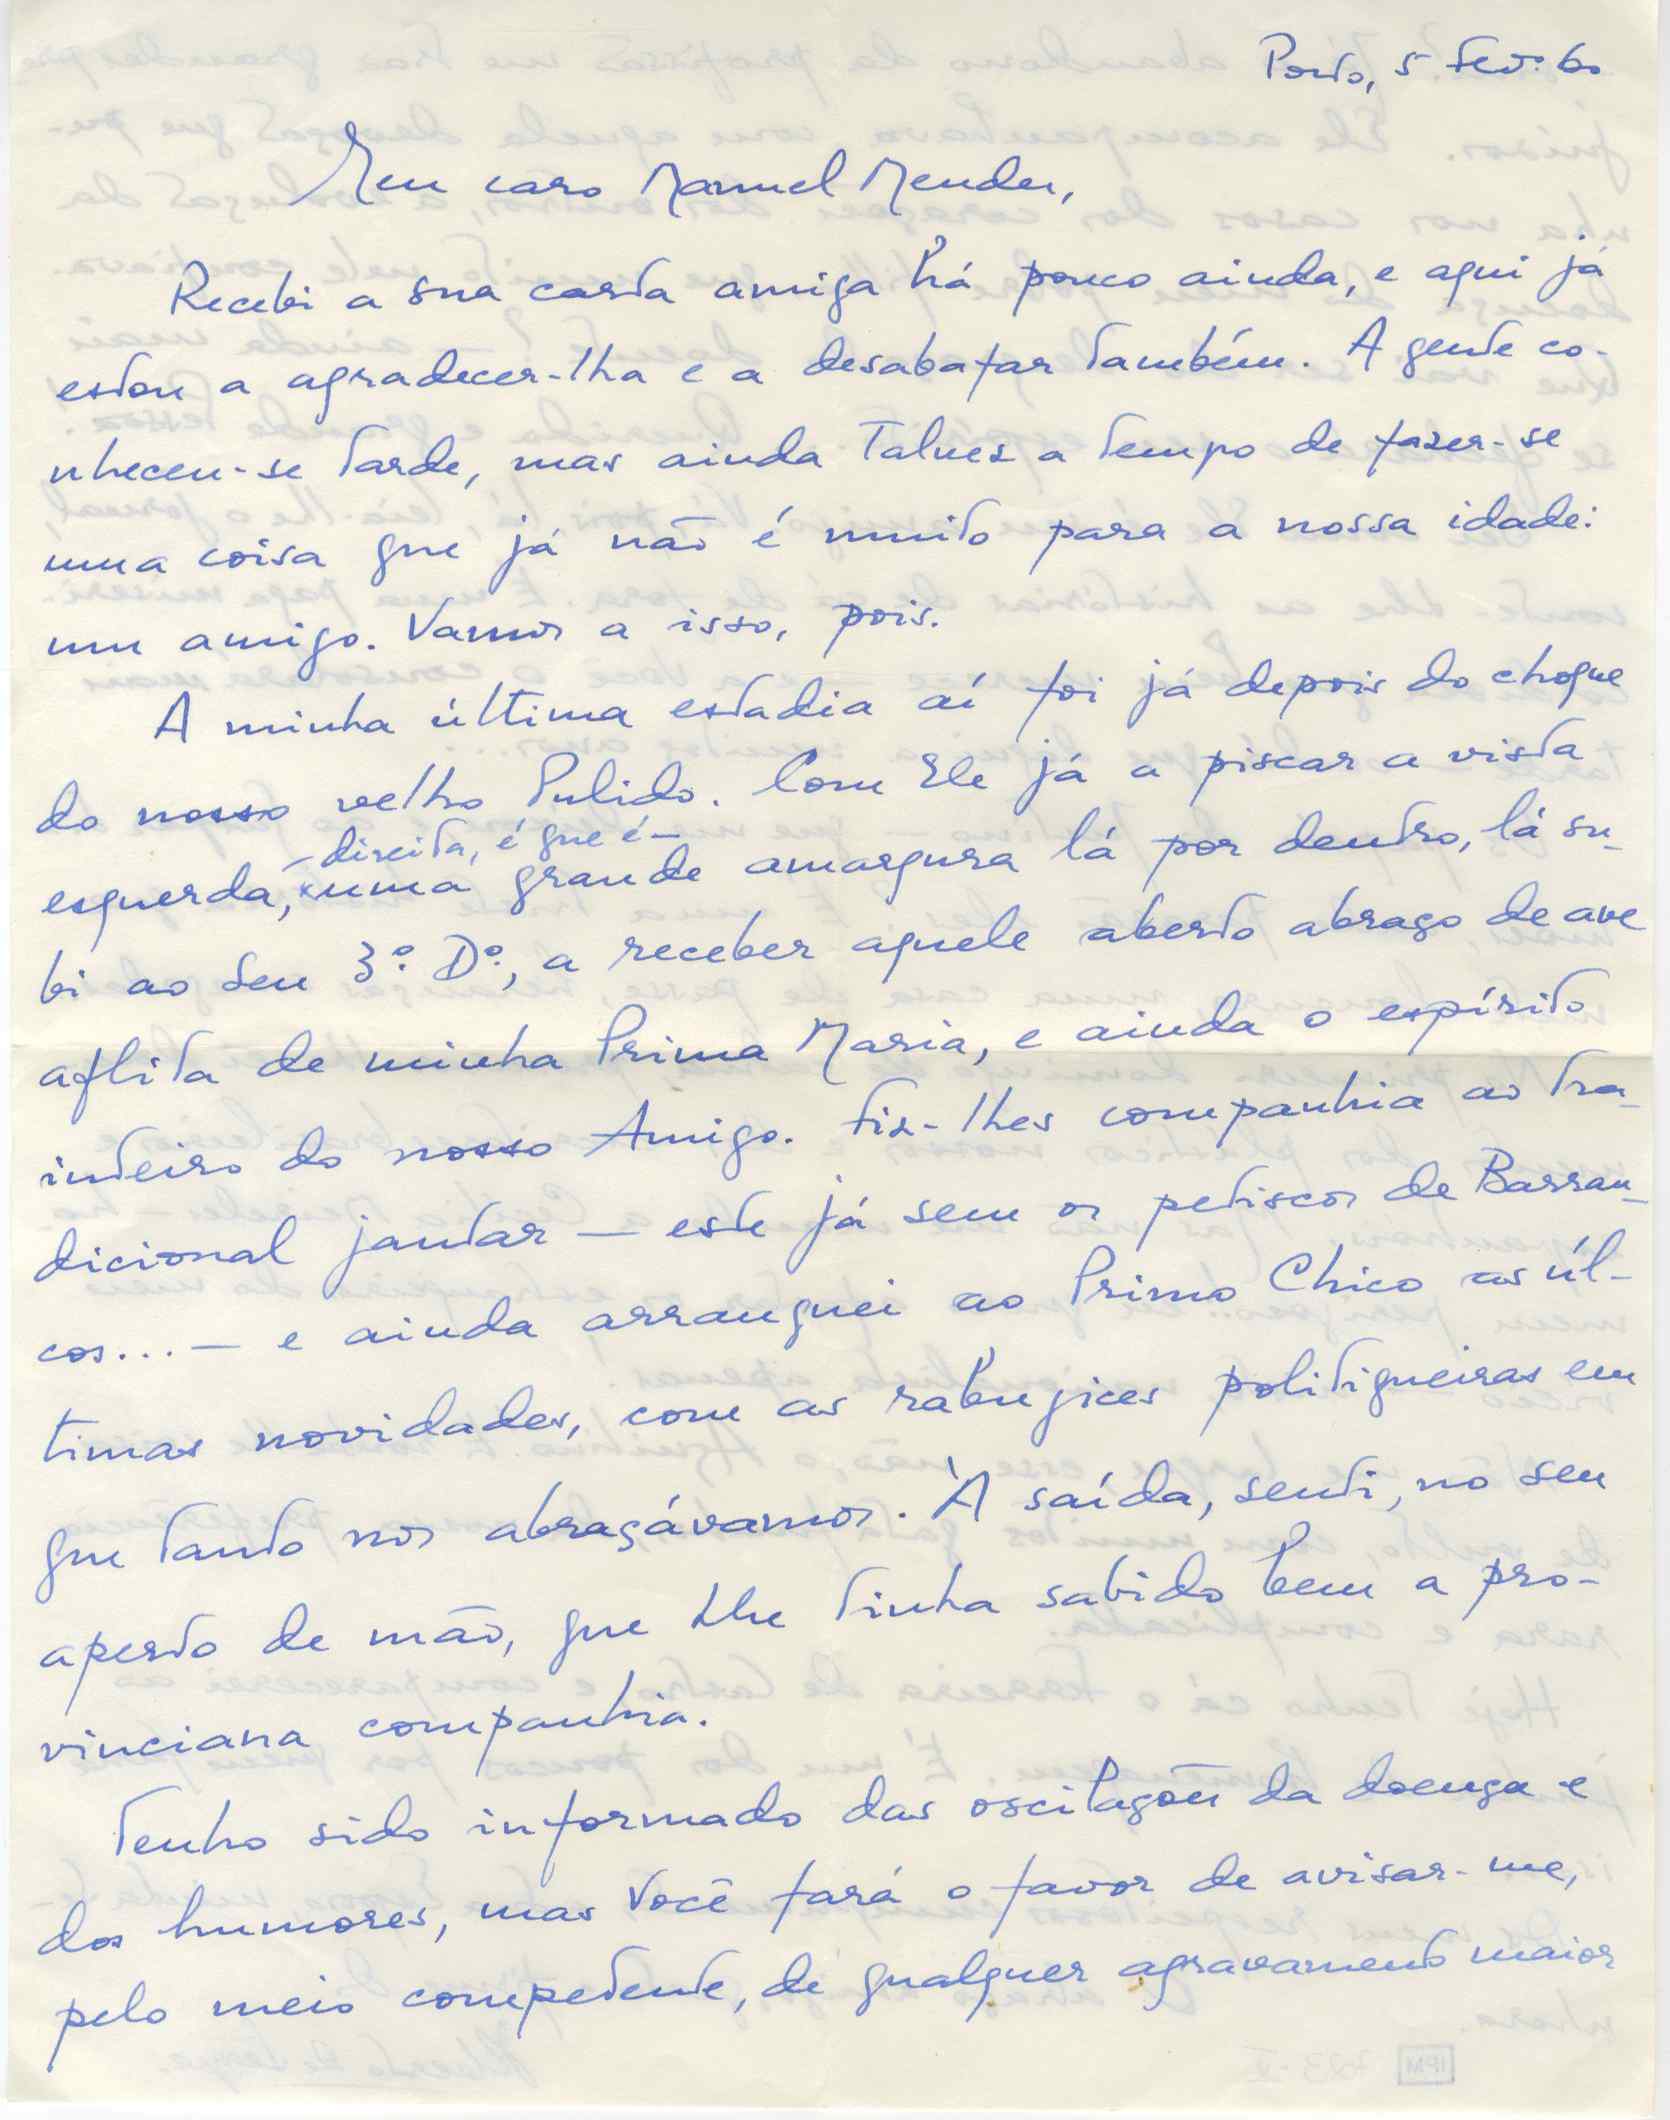 Porto, 5 Fev.º 60
Meu caro Manuel Mendes,
Recebi a sua carta amiga há pouco ainda, e aqui já
estou a agradecer-lha e a desabafar também. A gente co-
nheceu-se tarde, mas ainda talvez a tempo de fazer-se
uma coisa que já não é muito para a nossa idade:
um amigo. Vamos a isso, pois.
A minha última estadia aí foi já depois do choque
do nosso velho Pulido. Com Ele já a piscar a vista
– direita, é que é –
esquerda, uma grande amargura lá por dentro, lá su-
bi ao seu 3.º D.º, a receber aquele aberto abraço de ave
aflita de minha Prima Maria, e ainda o espírito
inteiro do nosso Amigo. Fiz-lhes companhia ao tra-
dicional jantar — este já sem os petiscos de Barran-
cos... — e ainda arranquei ao Primo Chico as úl-
timas novidades, com as rabujices politiqueiras em
que tanto nos abraçávamos. À saída, senti, no seu
aperto de mão, que Lhe tinha sabido bem a pro-
vinciana companhia.
Tenho sido informado das oscilações da doença e
dos humores, mas Você fará o favor de avisar-me,
pelo meio competente, de qualquer agravamento maior